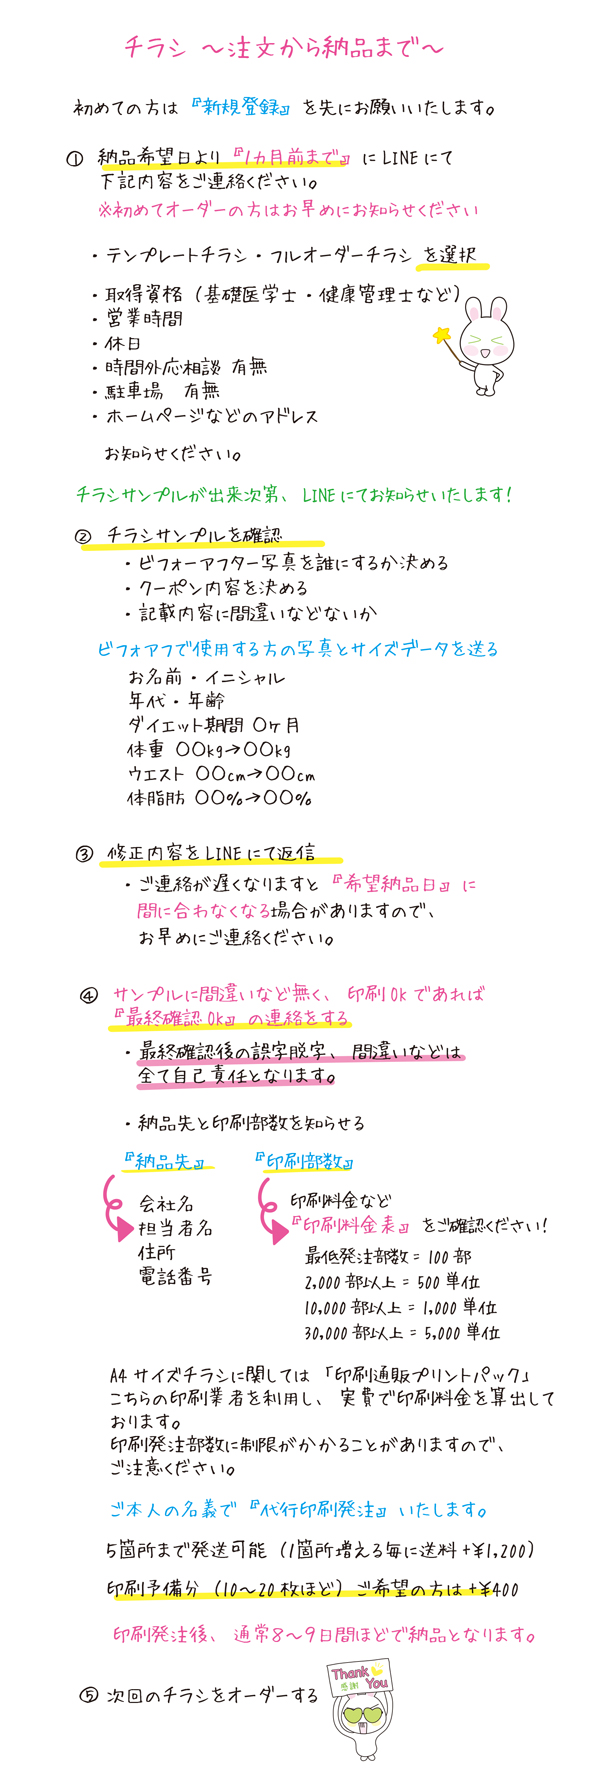 チラシ ～注文から納品まで～
初めての方は『新規登録』を先にお願いいたします。
① 納品希望日より『1カ月前まで』にLINEにて
下記内容をご連絡ください。
※初めてオーダーの方はお早めにお知らせください
・テンプレートチラシ・フルオーダーチラシ を選択
・取得資格（基礎医学士・健康管理士など）
・営業時間
・休日
・時間外応相談 有無
・駐車場 有無
・ホームページなどのアドレス
お知らせください。
チラシサンプルが出来次第、LINEにてお知らせいたします！
② チラシサンプルを確認
・ビフォーアフター写真を誰にするか決める
・クーポン内容を決める
・記載内容に間違いなどないか
ビフォアフで使用する方の写真とサイズデータを送る
お名前・イニシャル
年代・年齢
ダイエット期間 〇ヶ月
体重 〇〇kg→〇〇kg
ウエスト 〇〇cm→〇〇cm
体脂肪 〇〇%→〇〇%
③ 修正内容をLINEにて返信
・ご連絡が遅くなりますと『希望納品日』に
間に合わなくなる場合がありますので、
お早めにご連絡ください。
④ サンプルに間違いなど無く、印刷Okであれば
『最終確認Ok』の連絡をする
・最終確認後の誤字脱字、間違いなどは
全て自己責任となります。
・納品先と印刷部数を知らせる
『納品先』
会社名
担当者名
住所
電話番号
『印刷部数』
印刷料金など
『印刷料金表』をご確認ください！
最低発注部数 = 100部
2,000部以上 = 500単位
10,000部以上 = 1,000単位
30,000部以上 = 5,000単位
A4サイズチラシに関しては「印刷通販プリントパック」
こちらの印刷業者を利用し、実費で印刷料金を算出して
おります。
印刷発注部数に制限がかかることがありますので、
ご注意ください。
ご本人の名義で『代行印刷発注』いたします。
5箇所まで発送可能（1箇所増える毎に送料+¥1,200）
印刷予備分（10～20枚ほど）ご希望の方は+¥400
印刷発注後、通常8～9日間ほどで納品となります。
Thank
感謝 You
⑤ 次回のチラシをオーダーする